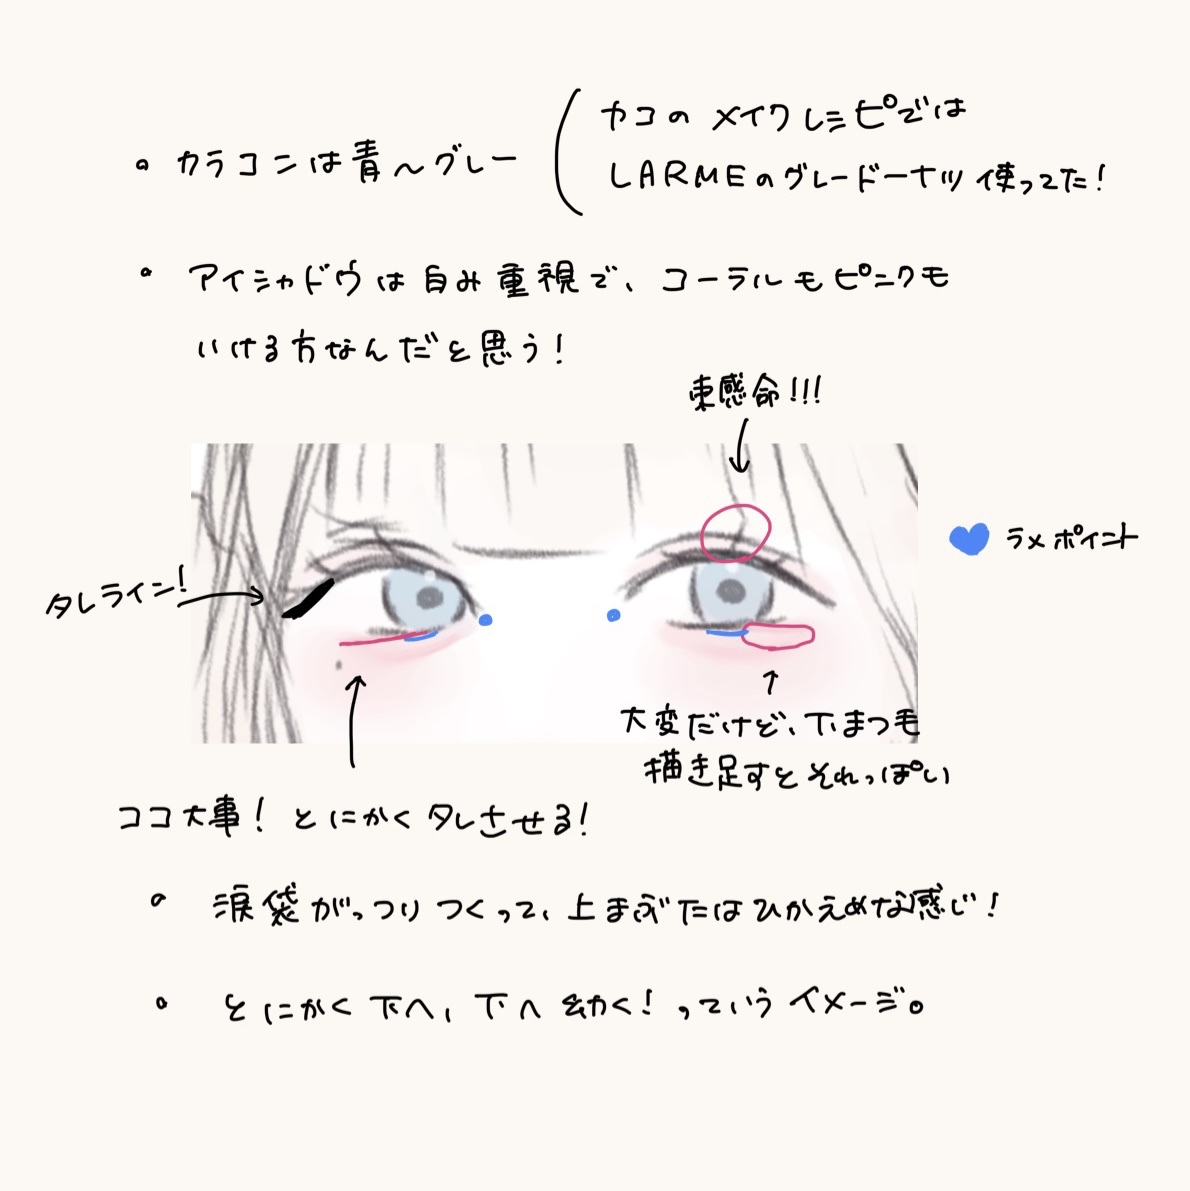 。カラコンは青〜グレー
(カコのメイクレシピでは
LARMEのグレードーナツ使ってた!
。アイシャドウは白み重視で、コーラルもピンクも
いける方なんだと思う!
束感命!!!
ラメポイント
タレライン!
大変だけど、下まつ毛
描き足すとそれっぽい
ココ大事! とにかくタレさせる!
。涙袋がっつりつくって、上まぶたはひかえめな感じ!
。とにかく下へ、下へ幼く!っていうイメージ。